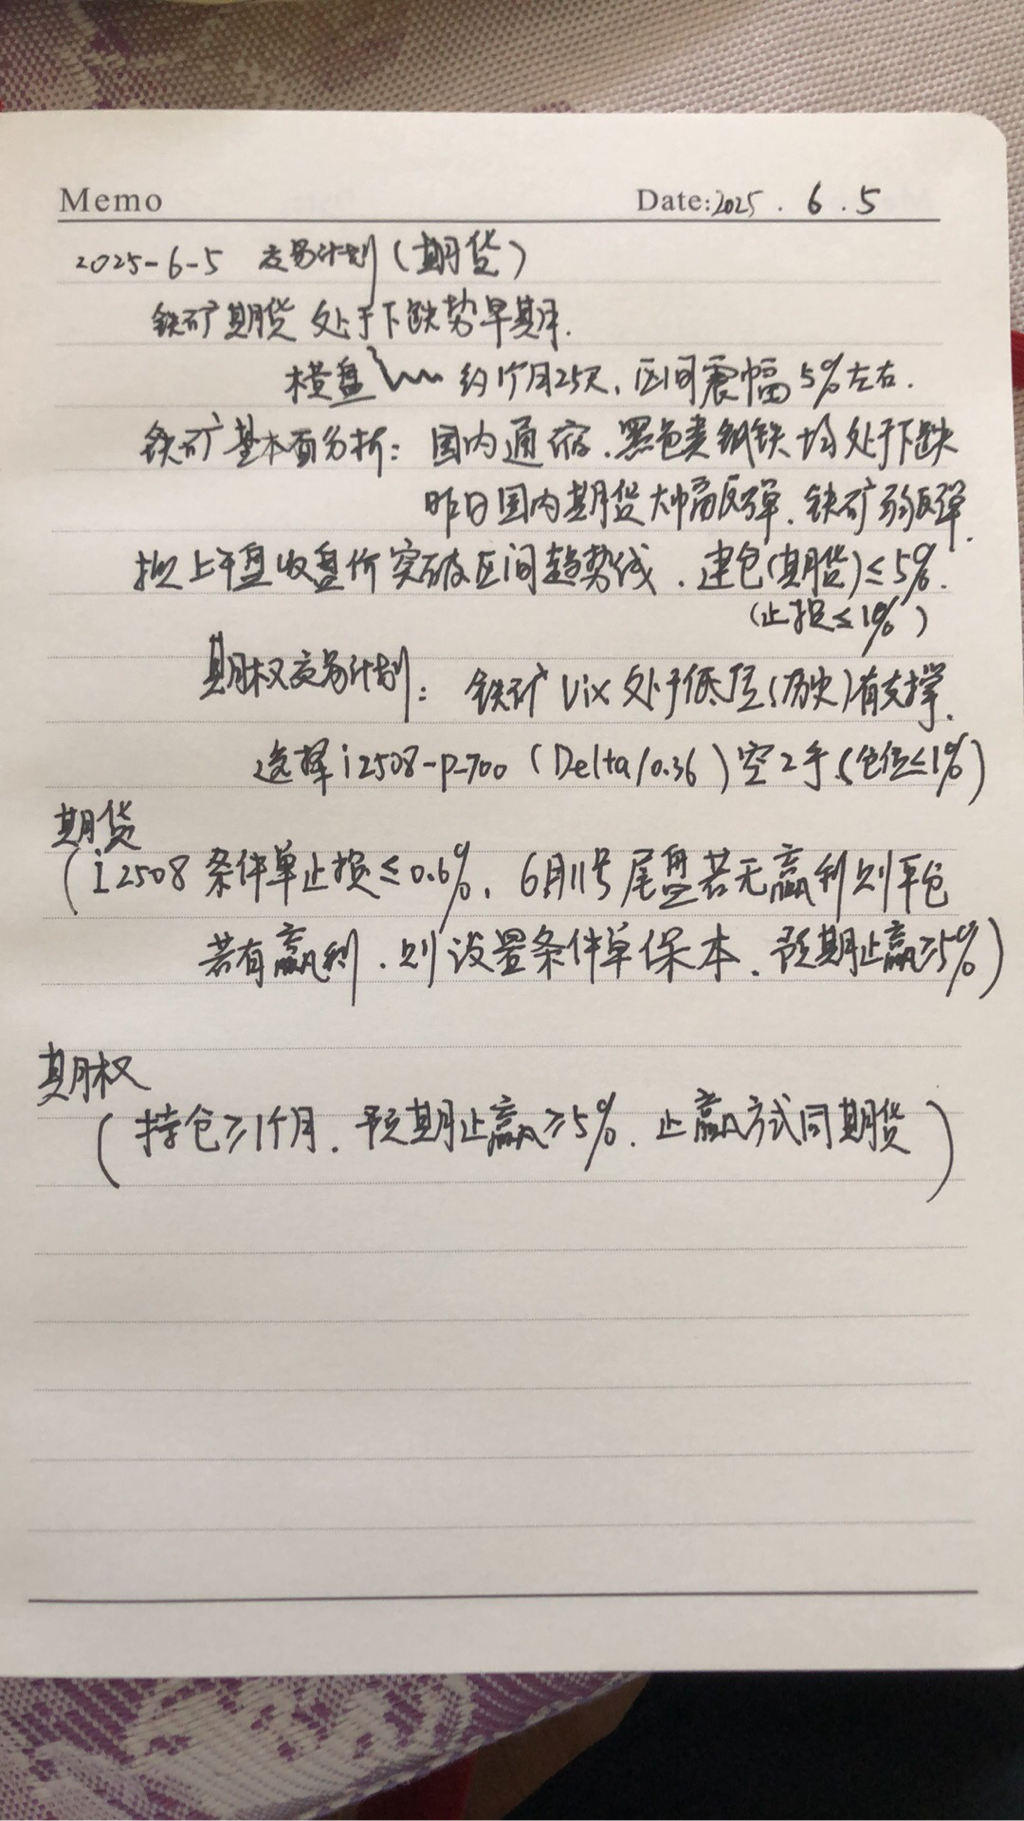 Memo Date:2025.6.5
2025-6-5 交易计划(期货)
铁矿期货处于下跌势早期.
横盘 约1个月25天,区间震幅5%左右.
铁矿基本面分析:国内通缩.黑色类钢铁均处于下跌
昨日国内期货大幅反弹.铁矿弱反弹.
拟上午盘收盘价突破区间趋势线.建仓(期货)≤5%.
(止损≤1%)
期权交易计划:铁矿Vix处于低位(历史)有支撑.
选择i2508-p-700(Delta/0.36)空2手(仓位≤1%)
期货
(i2508条件单止损≤0.6%.6月11号尾盘若无赢利则平仓
若有赢利.则设置条件单保本.预期止赢≥5%)
期权
(持仓≥1个月.预期止赢≥5%.止赢方式同期货)